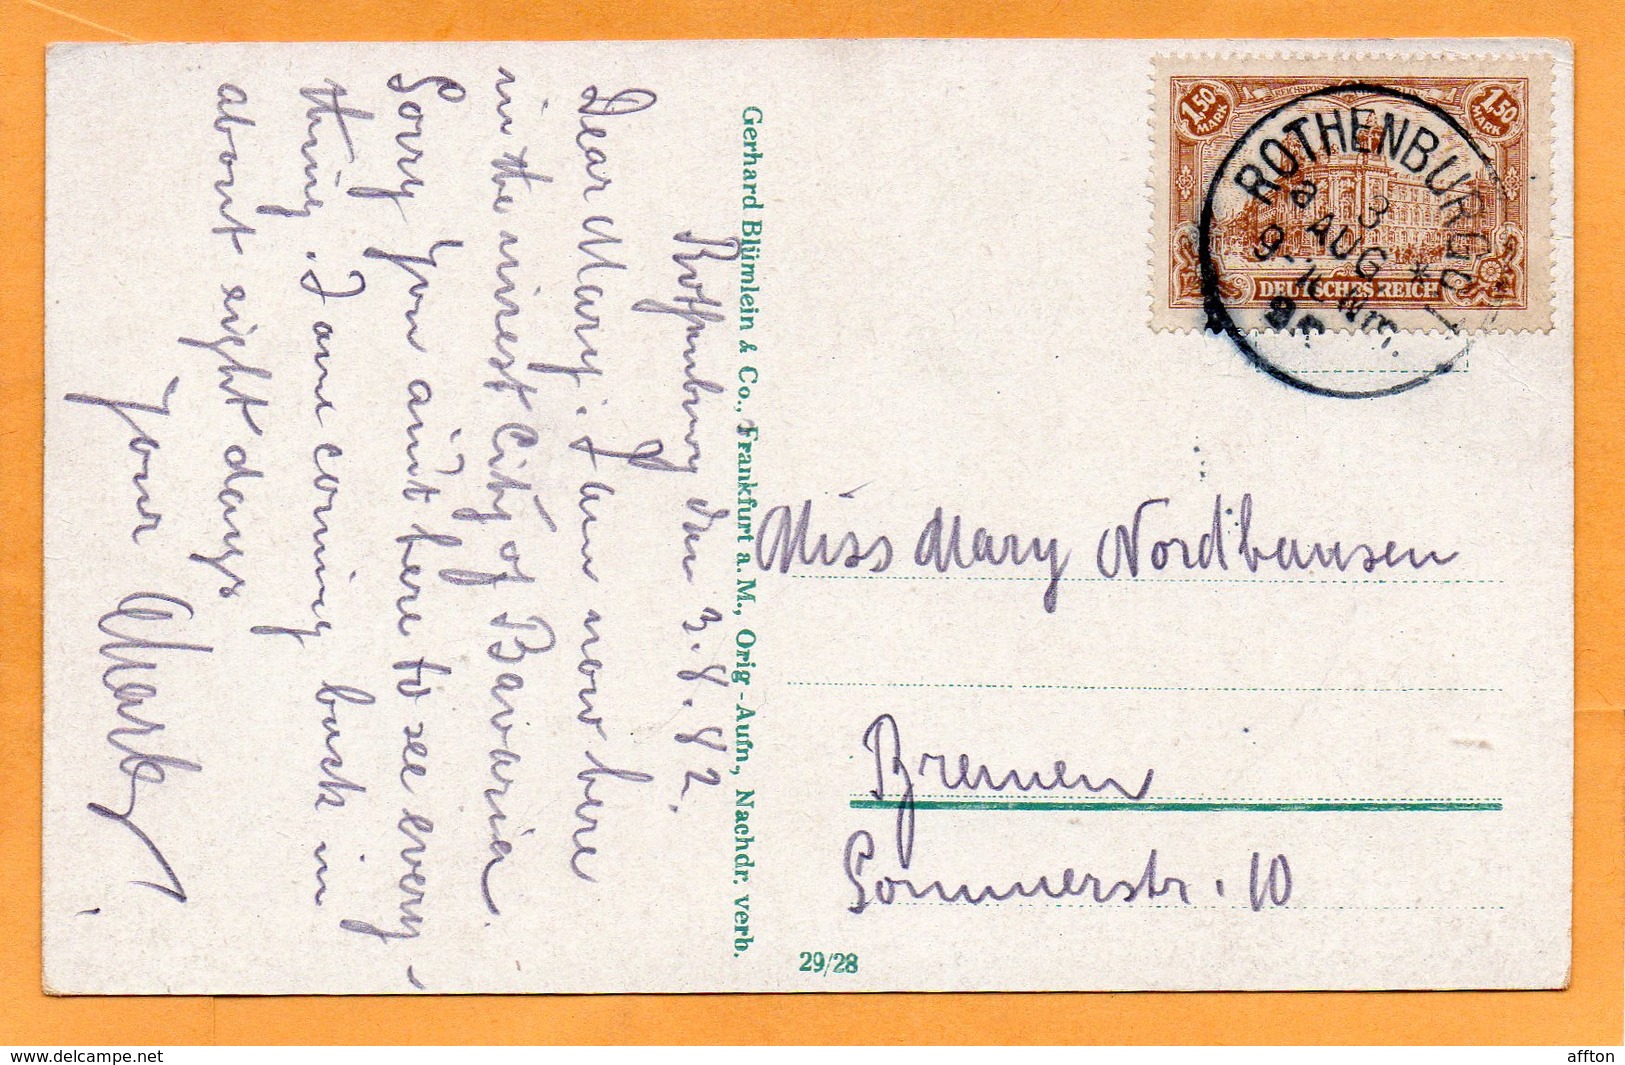 Rothenburg den 3.8.22.
Dear Mary! I am now here
in the nicest City of Bavaria.
Sorry you ain't here to see every-
thing. I am coming back in
about eight days
Your
Gerhard Blümlein & Co., Frankfurt a. M., Orig.-Aufn., Nachdr. verb.
1,50 MARK
1,50 MARK
DEUTSCHES REICH
ROTHENBURG
a 3
AUG *
Miss Mary Nordhausen
Bremen
Sommerstr. 10
29/28
www.delcampe.net
affton